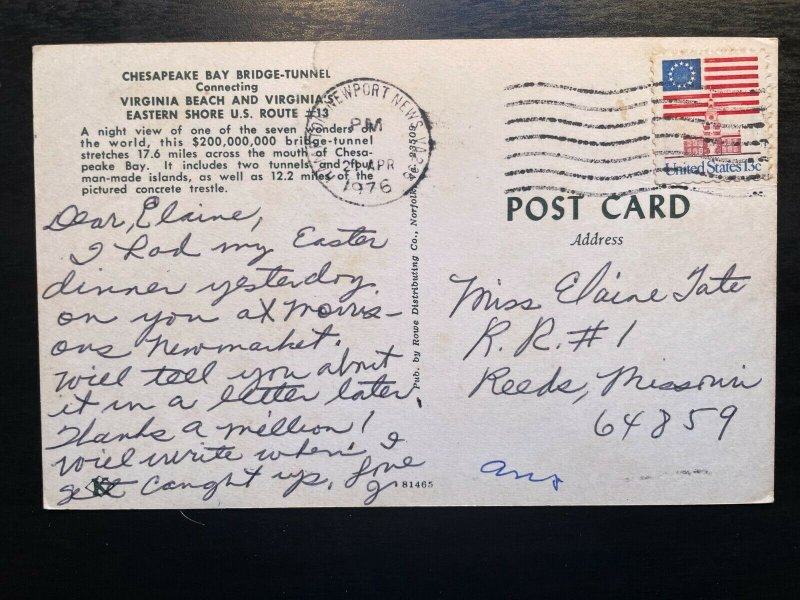 CHESAPEAKE BAY BRIDGE-TUNNEL
Connecting
VIRGINIA BEACH AND VIRGINIA'S
EASTERN SHORE U.S. ROUTE #13
A night view of one of the seven wonders of
the world, this $200,000,000 bridge-tunnel
stretches 17.6 miles across the mouth of Chesa-
peake Bay. It includes two tunnels and four
man-made islands, as well as 12.2 miles of the
pictured concrete trestle.
NEWPORT NEWS, VA
PM
APR
1976
United States 13c
POST CARD
Address
Dear, Elaine,
I had my Easter
dinner yesterday
on you at Morris-
ons Newmarket.
Will tell you about
it in a letter later.
Thanks a million!
Will write when I
get caught up, Love
Pub. by Rowe Distributing Co., Norfolk, Va. 23509
81465
Miss Elaine Tate
R.R. #1
Reeds, Missouri
64859
ans